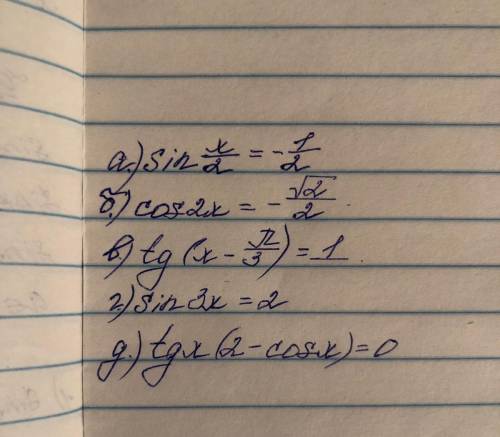 а.) sin x/2 = -1/2
б.) cos2x = -√2/2.
в) tg(x - π/3) = 1.
г.) sin 3x = 2
д.) tgx(2-cosx)=0